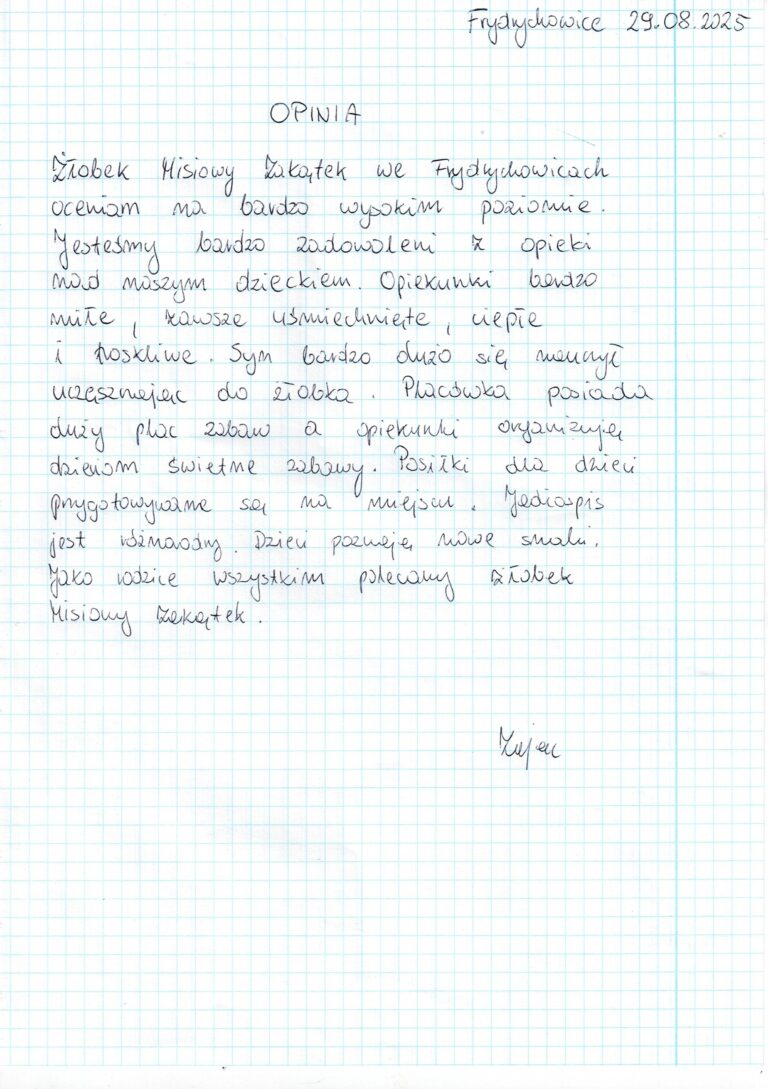 Frydrychowice 29.08.2025
OPINIA
Żłobek Misiowy Zakątek we Frydrychowicach
oceniam na bardzo wysokim poziomie.
Jesteśmy bardzo zadowoleni z opieki
nad naszym dzieckiem. Opiekunki bardzo
miłe, zawsze uśmiechnięte, ciepłe
i troskliwe. Syn bardzo dużo się nauczył
uczęszczając do żłobka. Placówka posiada
duży plac zabaw a opiekunki organizują
dzieciom świetne zabawy. Posiłki dla dzieci
przygotowywane są na miejscu. Jadłospis
jest różnorodny. Dzieci poznają nowe smaki.
Jako rodzice wszystkim polecamy żłobek
Misiowy Zakątek.